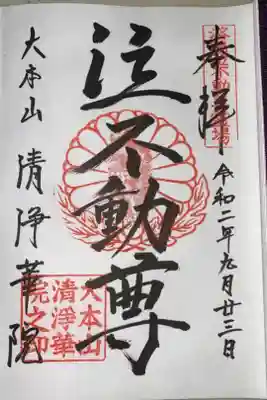 奉拝
令和二年九月廿三日
泣不動尊
大本山 清浄華院
大本山
清浄華
院之印